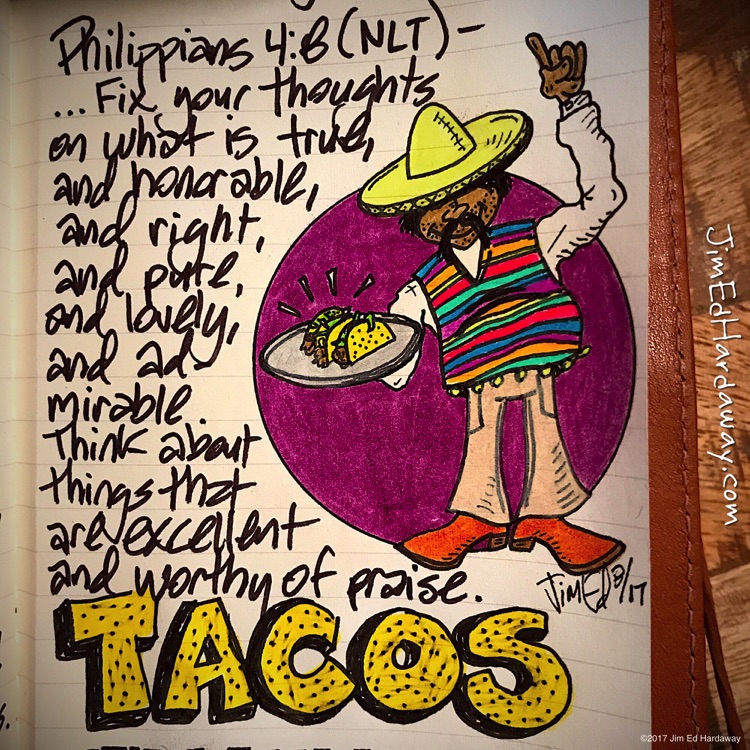 Philippians 4:8 (NLT) –
... Fix your thoughts
on what is true,
and honorable,
and right,
and pure,
and lovely,
and ad-
mirable.
Think about
things that
are excellent
and worthy of praise.
TACOS
JimEd 8/17
JimEdHardaway.com
©2017 Jim Ed Hardaway